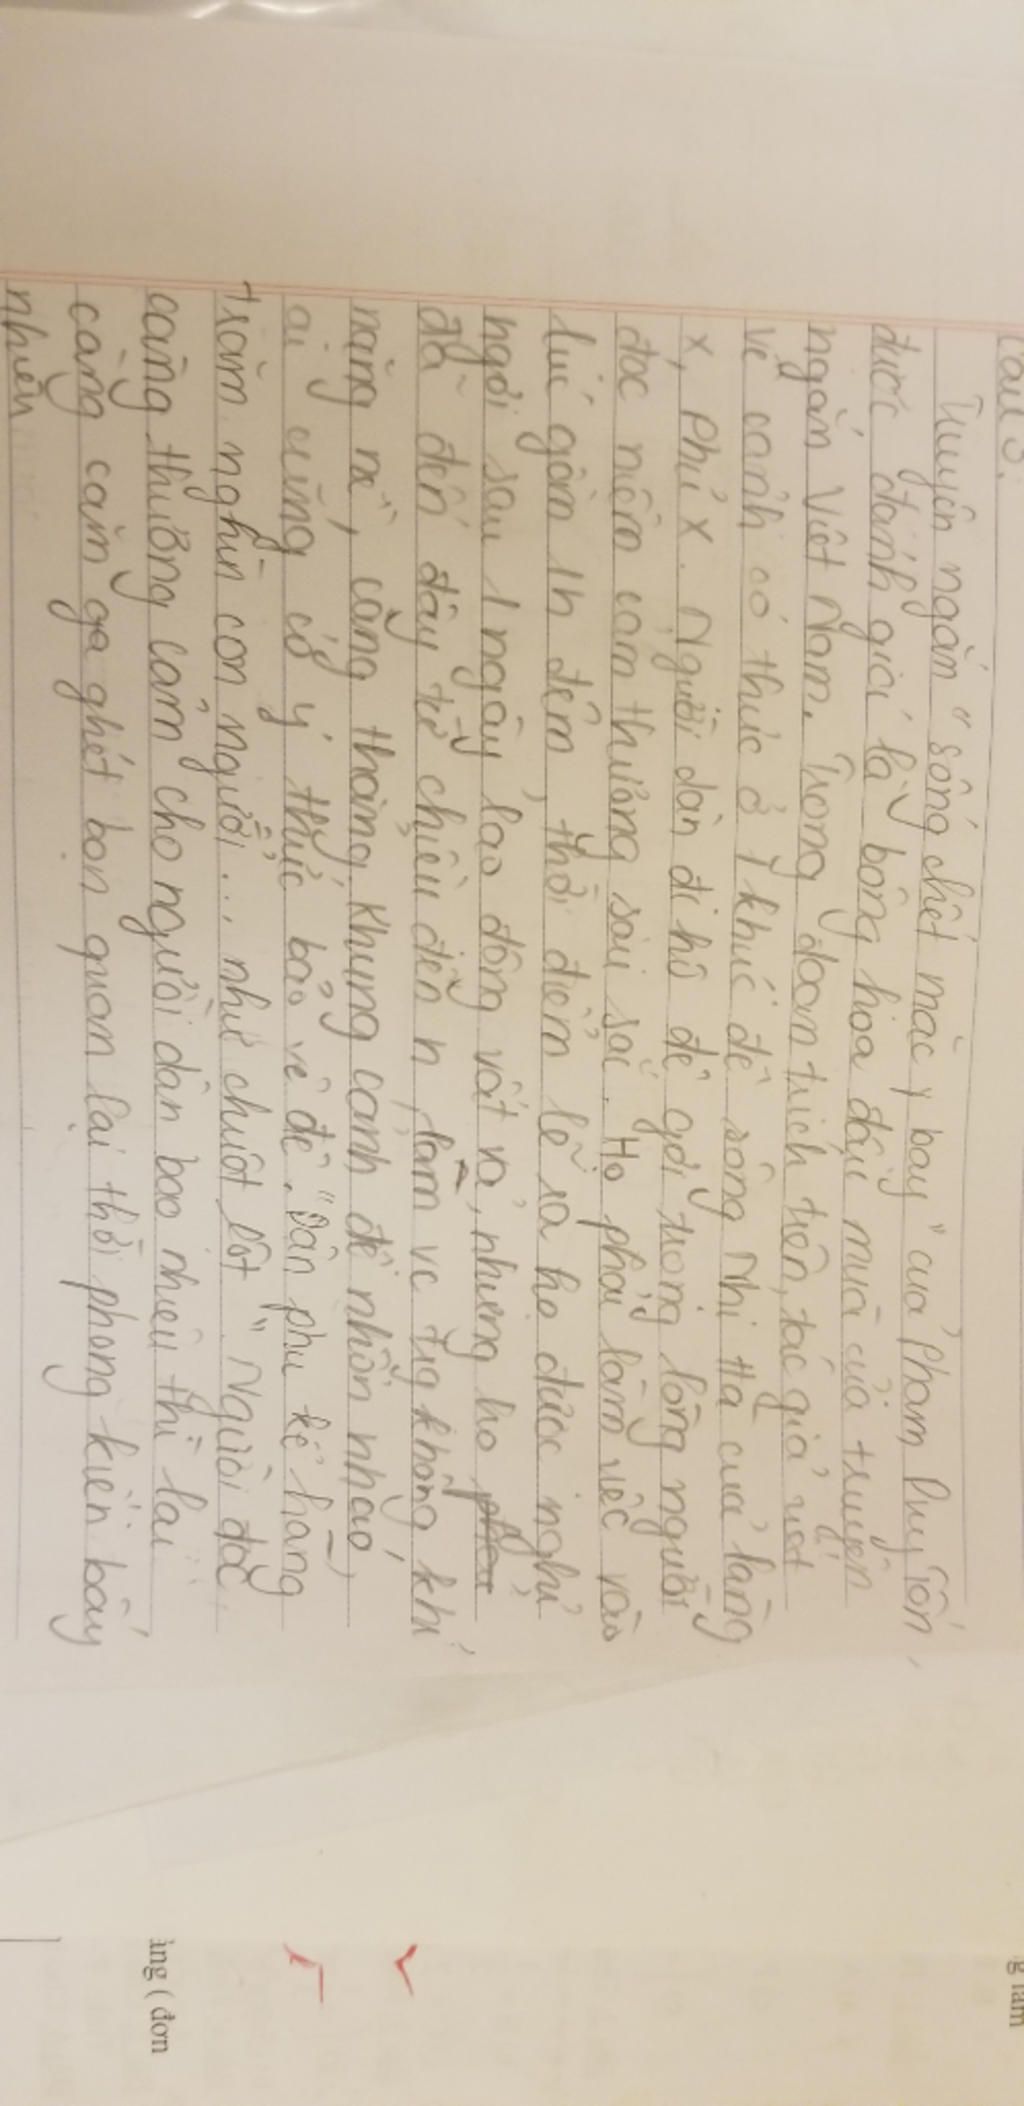 Câu 3:
Truyện ngắn "sống chết mặc bay" của Phạm Duy Tốn,
được đánh giá là bông hoa đầu mùa của truyện
ngắn Việt Nam. Trong đoạn trích trên, tác giả viết
về cảnh có thực ở 1 khúc đê sông Nhị Hà của làng
x, phủ x. Người dân đi hộ đê gợi trong lòng người
đọc niềm cảm thương sâu sắc. Họ phải làm việc vào
lúc gần 1h đêm, thời điểm lẽ ra họ được nghỉ
ngơi sau 1 ngày lao động vất vả, nhưng họ
đã đến đây từ chiều đến n, làm vc trg không khí
nặng nề, căng thẳng. Khung cảnh đê nhốn nháo,
ai cũng có ý thức bảo vệ đê. "Dân phu kể hàng
trăm nghìn con người... như chuột lột". Người đọc
càng thương cảm cho người dân bao nhiêu thì lại
càng căm gạ ghét bọn quan lại thời phong kiến bấy
nhiêu
g làm
ing ( đơn